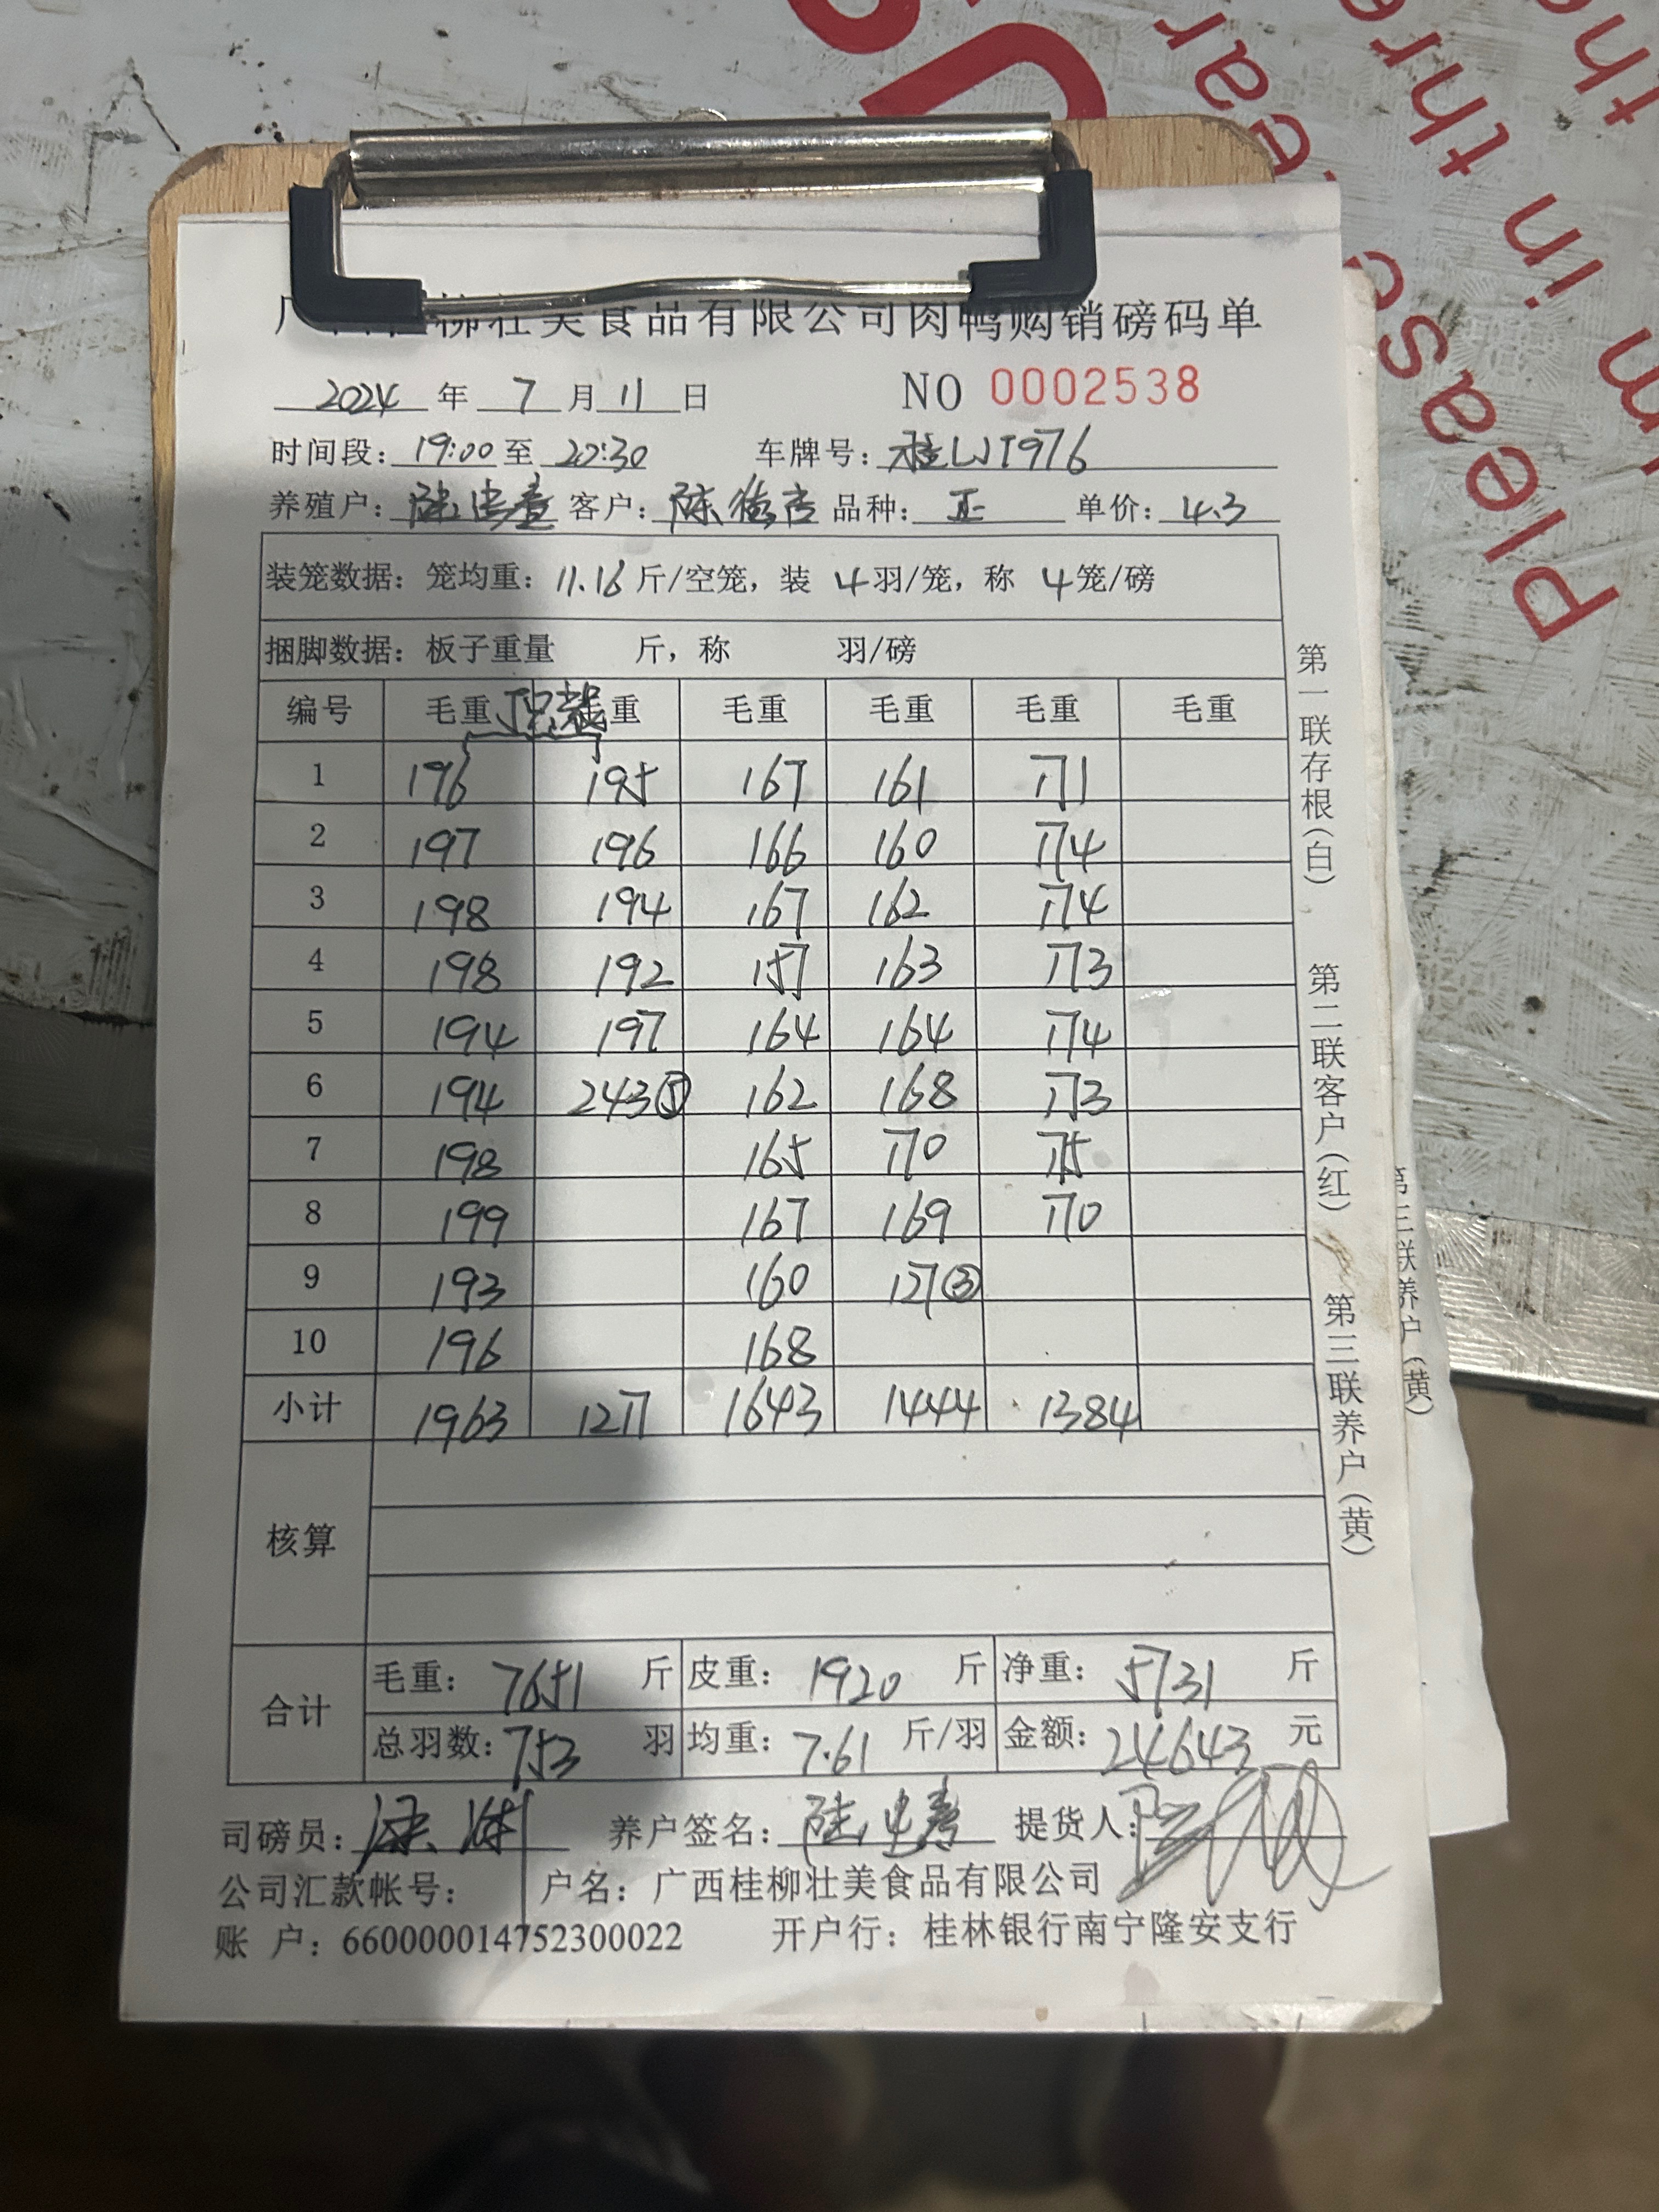 Please
ear
in
thr
the
广西桂柳壮美食品有限公司肉鸭购销磅码单
2024 年 7 月 11 日 NO 0002538
时间段: 19:00 至 20:30 车牌号: 桂LJT976
养殖户: 客户: 陈 品种: 正 单价: 4.3
装笼数据: 笼均重: 11.16 斤/空笼, 装 4 羽/笼, 称 4 笼/磅
捆脚数据: 板子重量 斤, 称 羽/磅
编号 毛重 毛重 毛重 毛重 毛重 毛重
1 196 195 167 161 171
2 197 196 166 160 174
3 198 194 167 162 174
4 198 192 157 163 173
5 194 197 164 164 174
6 194 243⑤ 162 168 173
7 198 165 170 175
8 199 167 169 170
9 193 160 127③
10 196 168
小计 1963 1217 1643 1444 1384
核算
合计 毛重: 7651 斤 皮重: 1920 斤 净重: 5731 斤
总羽数: 753 羽 均重: 7.61 斤/羽 金额: 24643 元
司磅员: 养户签名: 提货人:
公司汇款帐号: 户名: 广西桂柳壮美食品有限公司
账 户: 660000014752300022 开户行: 桂林银行南宁隆安支行
第一联存根(白) 第二联客户(红) 第三联养户(黄)
第三联养户(黄)